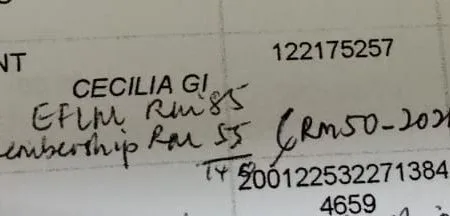 NT 122175257
CECILIA GI
EFLM RM85
embership RM 55 (RM50-202
200122532271384
4659